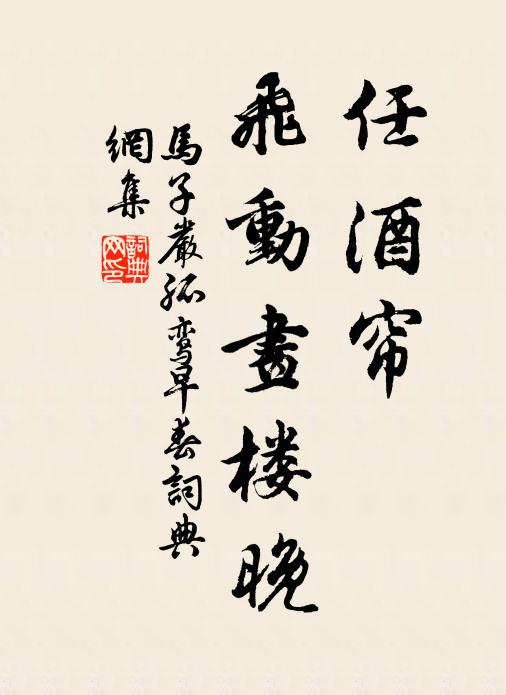 任酒帘
飛動畫楼晚
馬子嚴孤鸾早春詞典
網集
詞典
网印